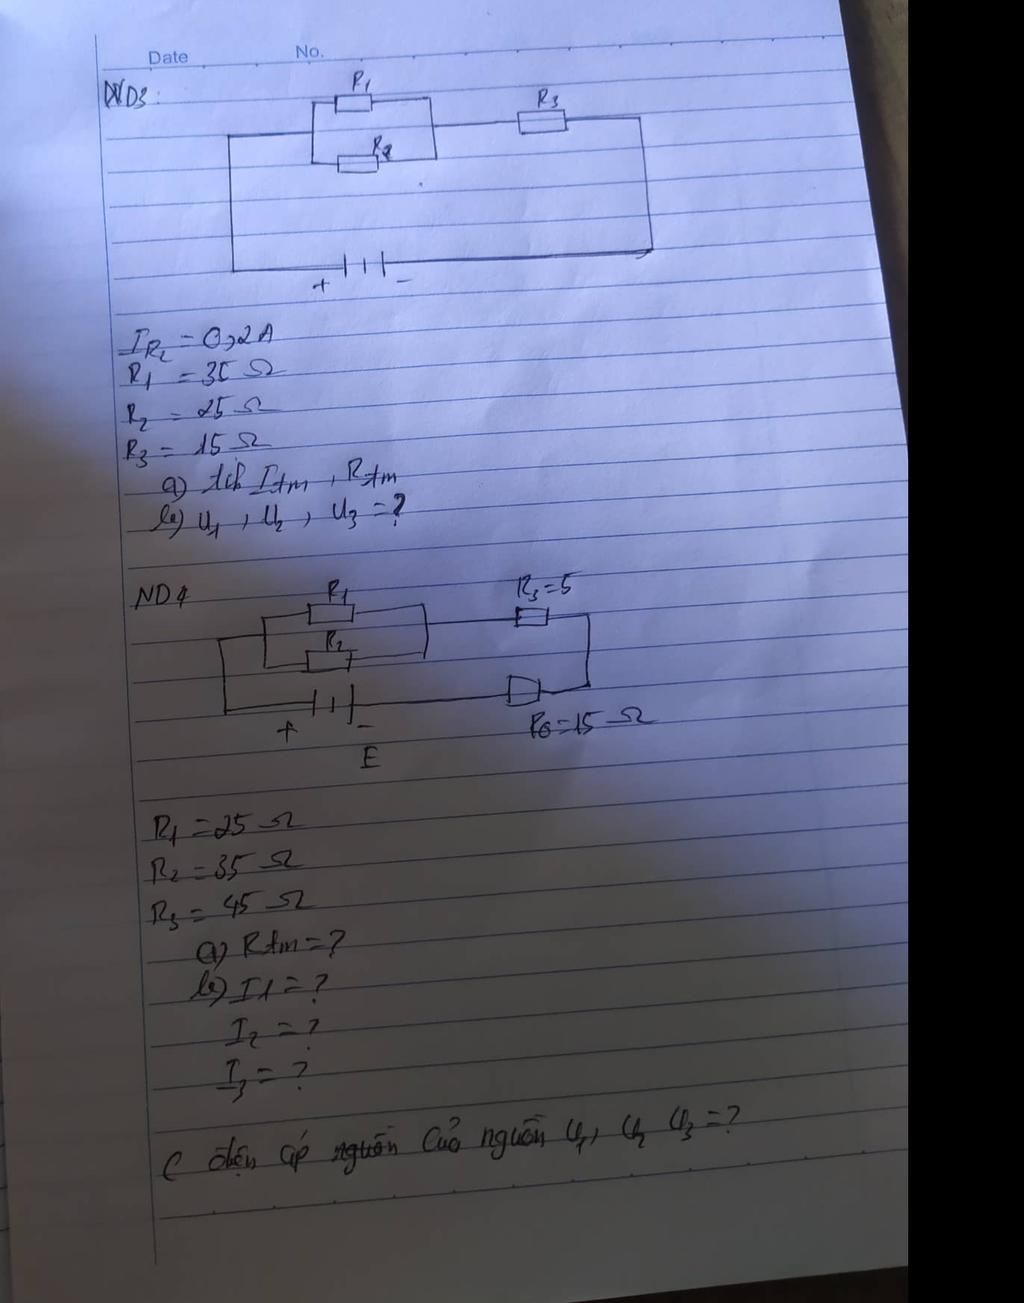 Date No.
VD3:
R1
R3
R2
+ -
IR2 = 0,2A
R1 = 35 Ω
R2 = 25 Ω
R3 = 15 Ω
a) tch Itm, Rtm
b) U1, U2, U3 = ?
ND4
R1
R3=5
R2
+ -
R6=15 Ω
E
R1 = 25 Ω
R2 = 35 Ω
R3 = 45 Ω
a) Rtm = ?
b) I1 = ?
I2 = ?
I3 = ?
C điện áp nguồn của nguồn U1, U2 U3 = ?